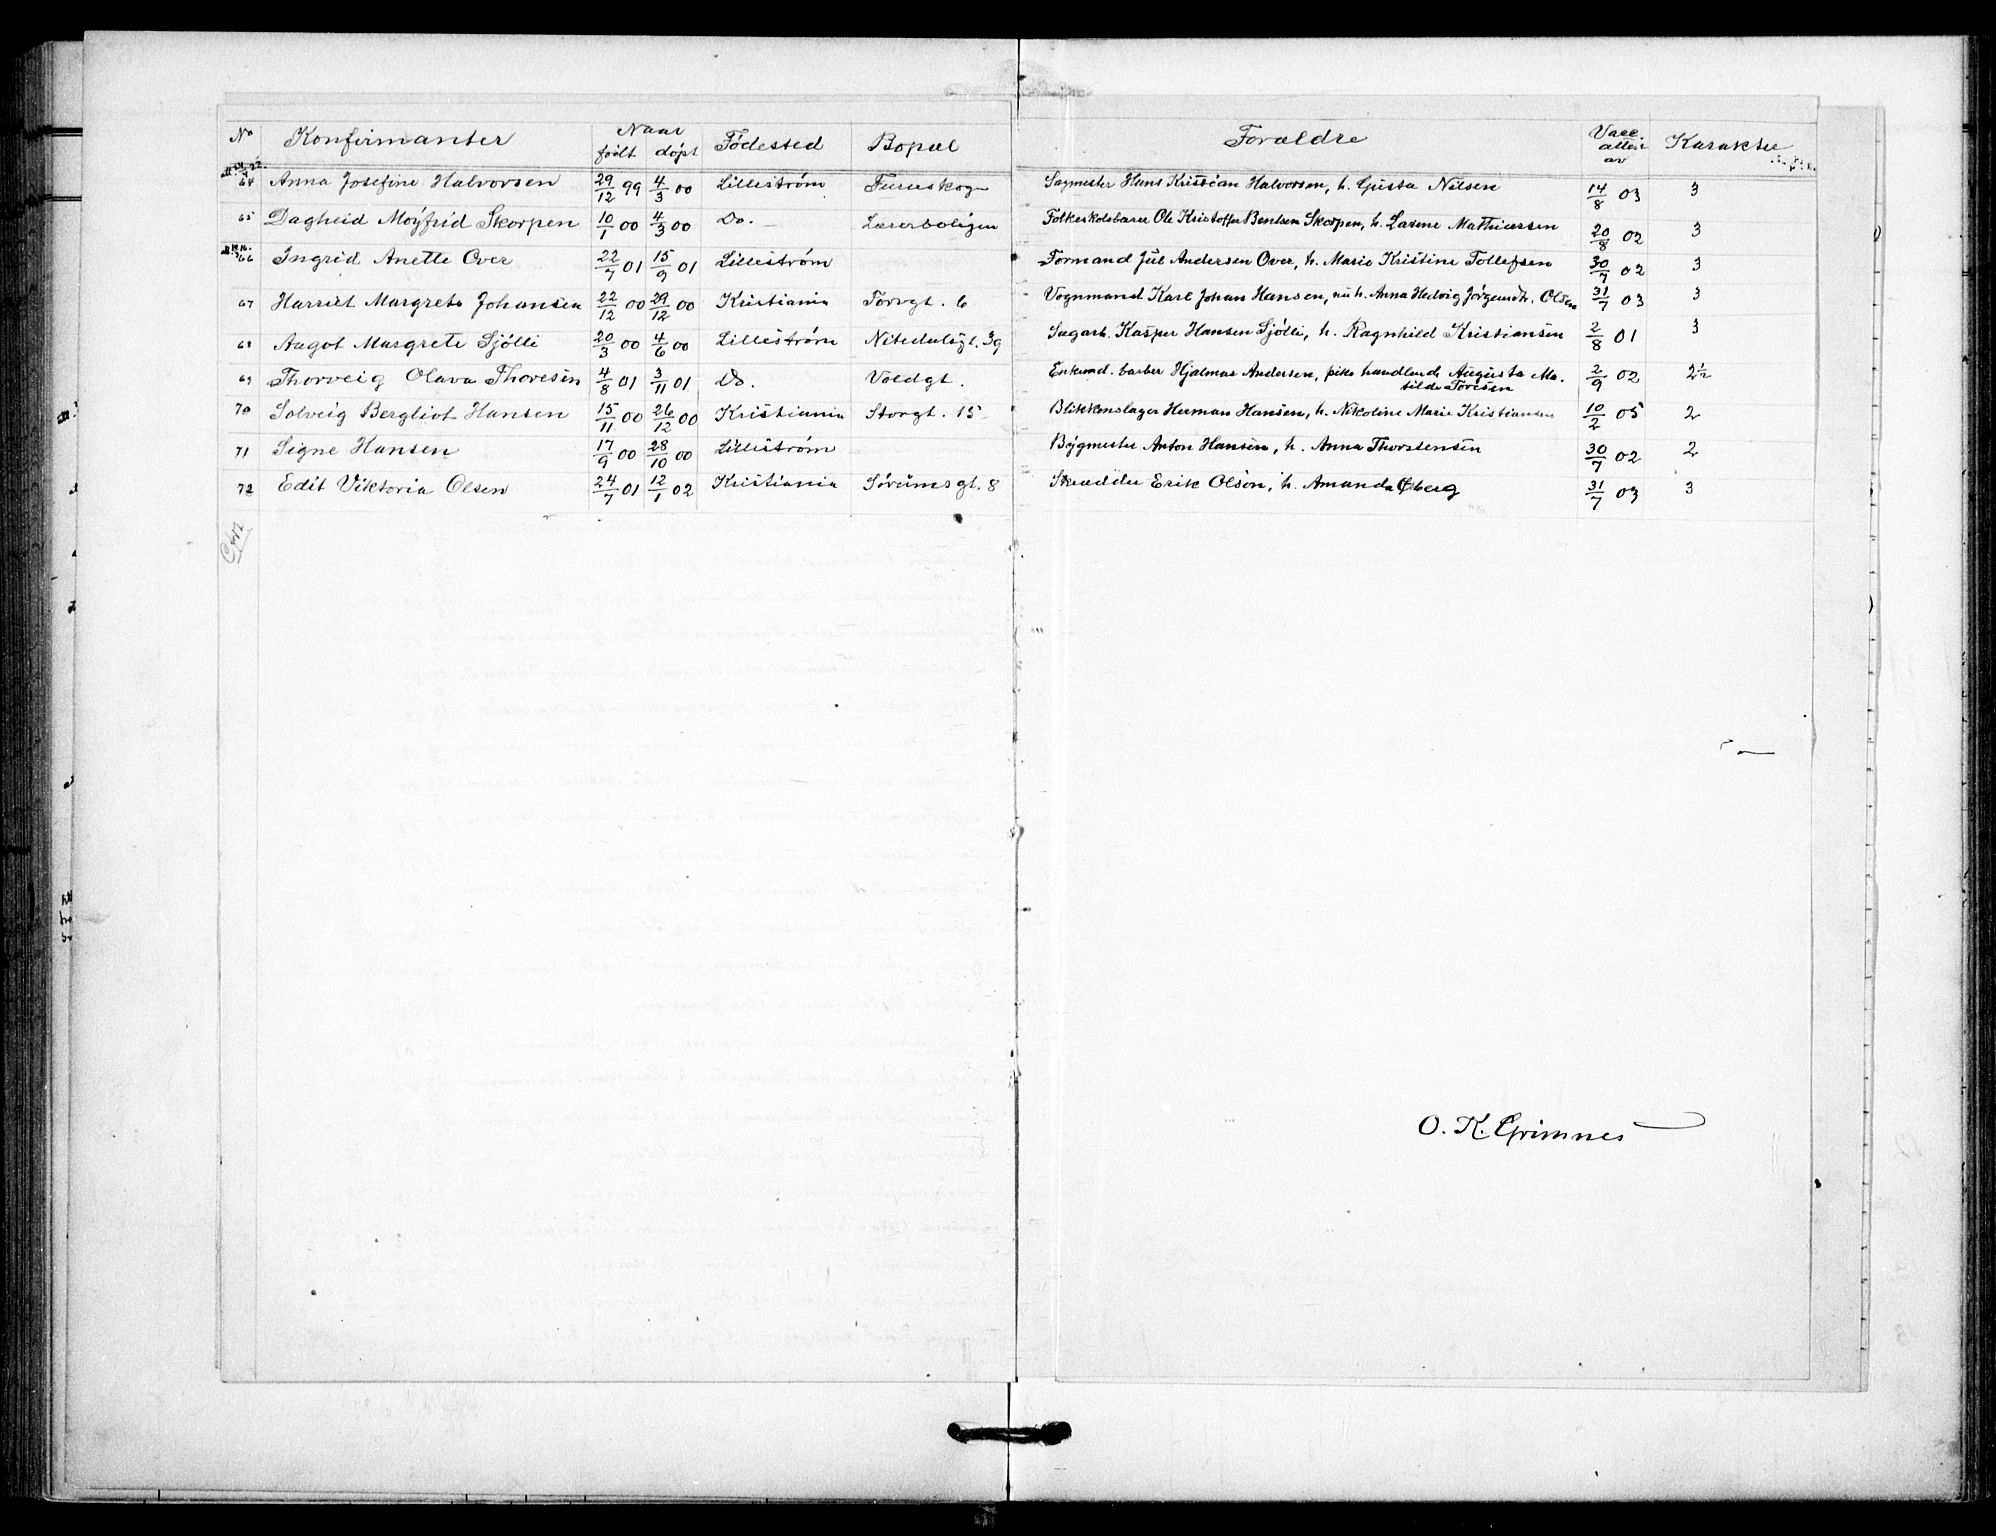 No Konfirmanter Naar født døpt Fødested Bopæl Forældre Vacc. attest av Karakter
64 Anna Josefine Halvorsen 29/12 99 4/3 00 Lillestrøm Furuskogn Sagmester Hans Kristian Halvorsen, h. Gusta Nilsen 14/8 03 3
65 Dagheid Moyfrid Skorpen 10/1 00 4/3 00 Do. Lærerboligen Ole Kristoffer Bentsen Skorpen, h. Lasine Mathiassen 20/8 02 3
66 Ingrid Anette Over 22/7 01 15/9 01 Lillestrøm Formand Jul Andersen Over, h. Marie Kristine Tollefsen 30/7 02 3
67 Harriet Margrete Johansen 22/12 00 29/12 00 Kristiania Torvgt. 6 Vognmand Karl Johan Hansen, h. Anna Hedvig Jørgensdtr. Olsen 31/7 03 3
68 Aagot Margrete Sjølli 20/3 00 4/6 00 Lillestrøm Nitedalsgt. 39 Sagarb. Kasper Hansen Sjølli, h. Ragnhild Kristiansen 2/8 01 3
69 Thorveig Olava Thoresen 4/8 01 3/11 01 Do. Voldgt. Enkemd. barber Hjalmar Andersen, pike handlend. Augusta Ma-
tilde Toresen 2/9 02 2½
70 Solveig Bergliot Hansen 15/11 00 26/12 00 Kristiania Storgt. 15 Blikkenslager Herman Hansen, h. Nikoline Marie Kristiansen 10/2 05 2
71 Signe Hansen 17/9 00 28/10 00 Lillestrøm Bygmester Anton Hansen, h. Anna Thorstensen 30/7 02 2
72 Edit Viktoria Olsen 24/7 01 12/1 02 Kristiania Sørumsgt. 8 Skrædder Erik Olson, h. Amanda 31/7 03 3
O. K. Grimnes